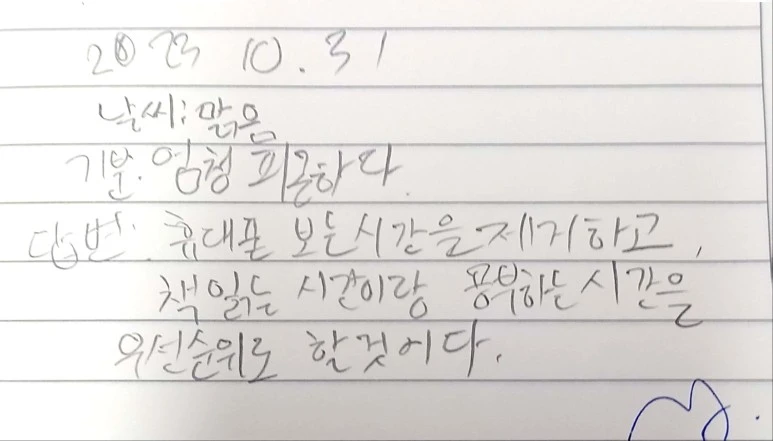 2023 10.31
날씨: 맑음
기분. 엄청 피곤하다.
답변: 휴대폰 보는시간을 제거하고,
책 읽는 시간이랑 공부하는 시간을
우선순위로 할것이다.